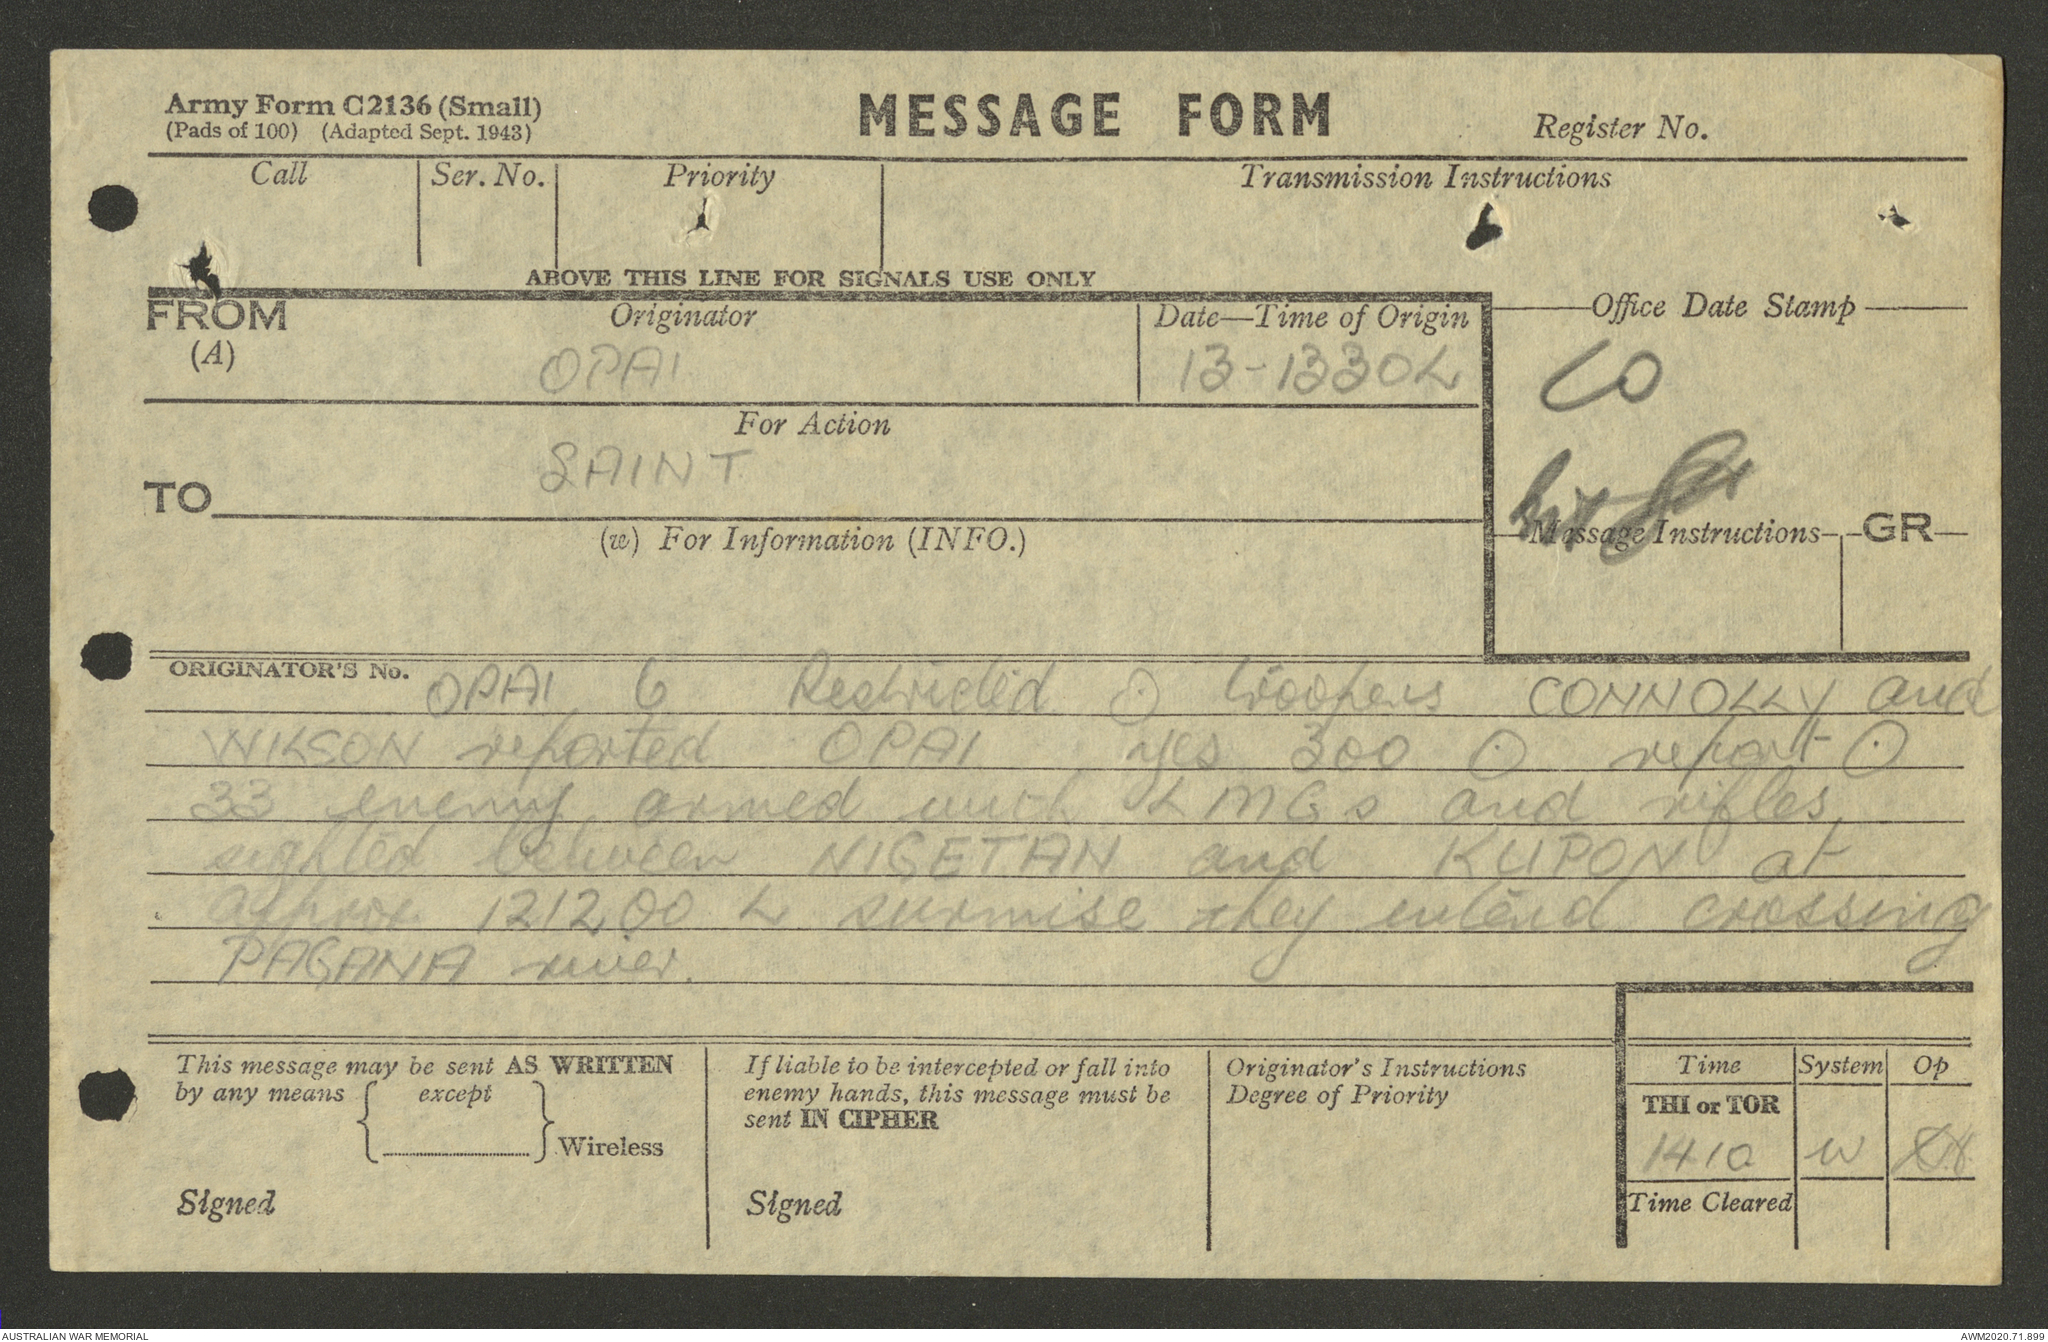 Army Form C2136 (Small)
(Pads of 100) (Adapted Sept. 1943)
MESSAGE FORM
Register No.
Call
Ser. No.
Priority
Transmission Instructions
ABOVE THIS LINE FOR SIGNALS USE ONLY
FROM
(A)
Originator
OPAI
Date—Time of Origin
13-1330L
Office Date Stamp
CO
For Action
SAINT
TO
(w) For Information (INFO.)
Message Instructions
GR
ORIGINATOR'S No.
OPAI 6 Restricted ⊙ troopers CONNOLLY and
WILSON reported OPAI yes 300 ⊙ report ⊙
33 enemy armed with LMGs and rifles
sighted between NIGETAN and KUPON at
approx 121200 L surmise they intend crossing
PAGANA river.
This message may be sent AS WRITTEN
by any means { except } Wireless
Signed
If liable to be intercepted or fall into
enemy hands, this message must be
sent IN CIPHER
Signed
Originator's Instructions
Degree of Priority
Time
System
Op
THI or TOR
1410
W
Time Cleared
AUSTRALIAN WAR MEMORIAL
AWM2020.71.899